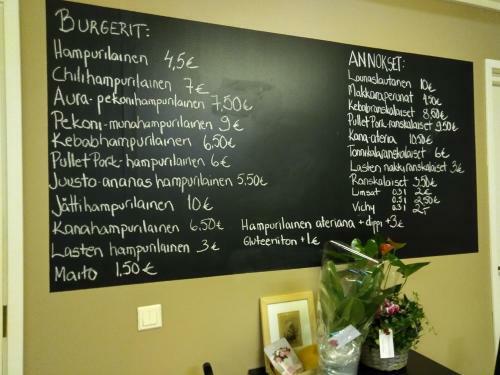 BURGERIT:
Hampurilainen 4,5€
Chilihampurilainen 7€
Aura-pekonihampurilainen 7,50€
Pekoni-munahampurilainen 9€
Kebabhampurilainen 6,50€
Pullet Pork-hampurilainen 6€
Juusto-ananas hampurilainen 5.50€
Jättihampurilainen 10€
Kanahampurilainen 6.50€
Lasten hampurilainen 3€
Maito 1.50€
Hampurilainen ateriana + dippi +3€
Gluteeniton +1€
ANNOKSET:
Lounaslautanen 10€
Makkaraperunat
Kebabranskalaiset 8,50€
Pullet Pork-ranskalaiset 9.50€
Kana-ateria 10.50€
Tonnikalaranskalaiset 6€
Lasten nakkiranskalaiset 3€
Ranskalaiset 3,50€
Limsat 0.3l 2€
0.5l 2,50€
Vichy 0.5l 2,-